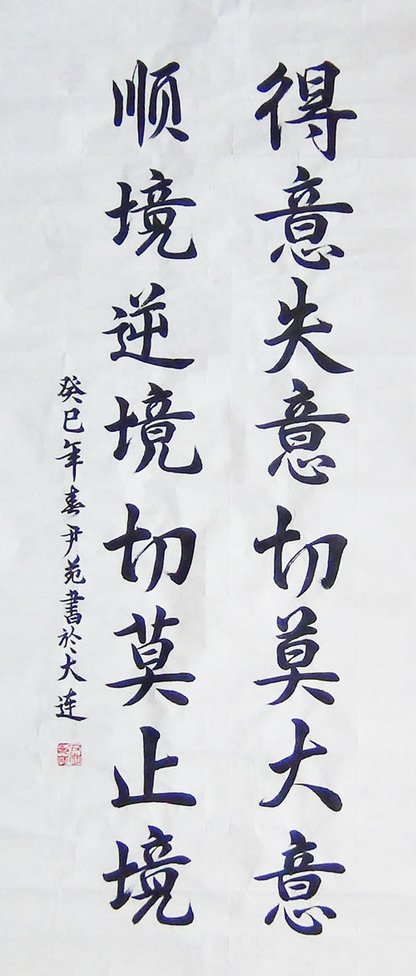 得意失意切莫大意
顺境逆境切莫止境
癸巳年春尹苑書於大连